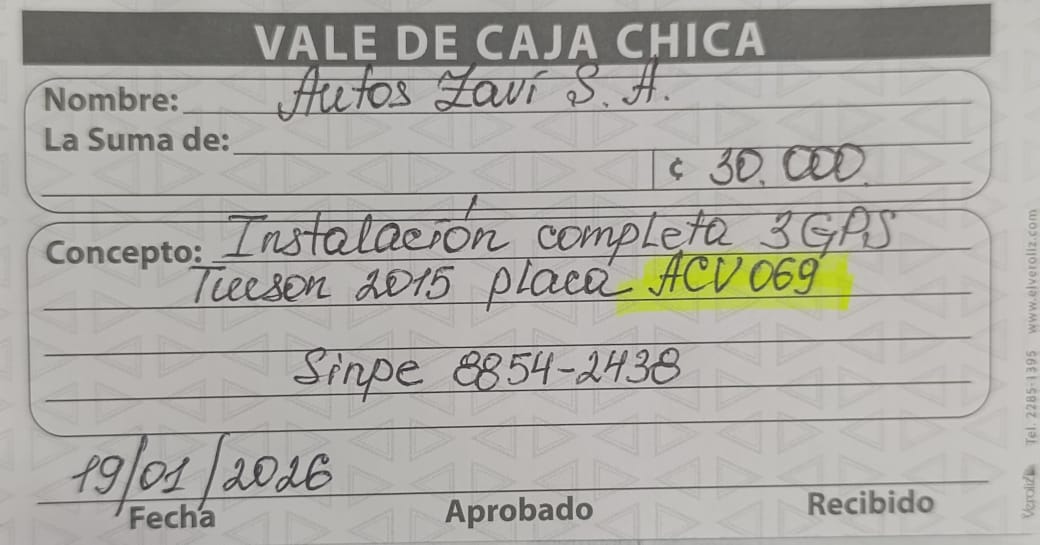 VALE DE CAJA CHICA
Nombre: Autos Zavi S. A.
La Suma de:
¢ 30.000
Concepto: Instalación completa 3 GPS
Tucson 2015 placa ACV 069
Sinpe 8854-2438
19/01/2026
Fecha Aprobado Recibido
Veroliz Tel. 2285-1395 www.elveroliz.com